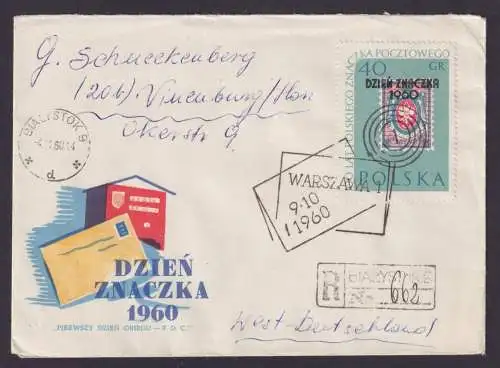 G. Schneckenberg
(20b) Vienenburg/Han
Okerstr 9
BIAŁYSTOK 9
KA POCZTOWEGO
40 GR
DZIEŃ ZNACZKA
1960
POLSKIEGO ZNAC
POLSKA
WARSZAWA 1
9·10
1960
DZIEŃ
ZNACZKA
1960
"PIERWSZY DZIEŃ OBIEGU – F.D.C."
R
BIAŁYSTOK 9
Nr. 662
West-Deutschland